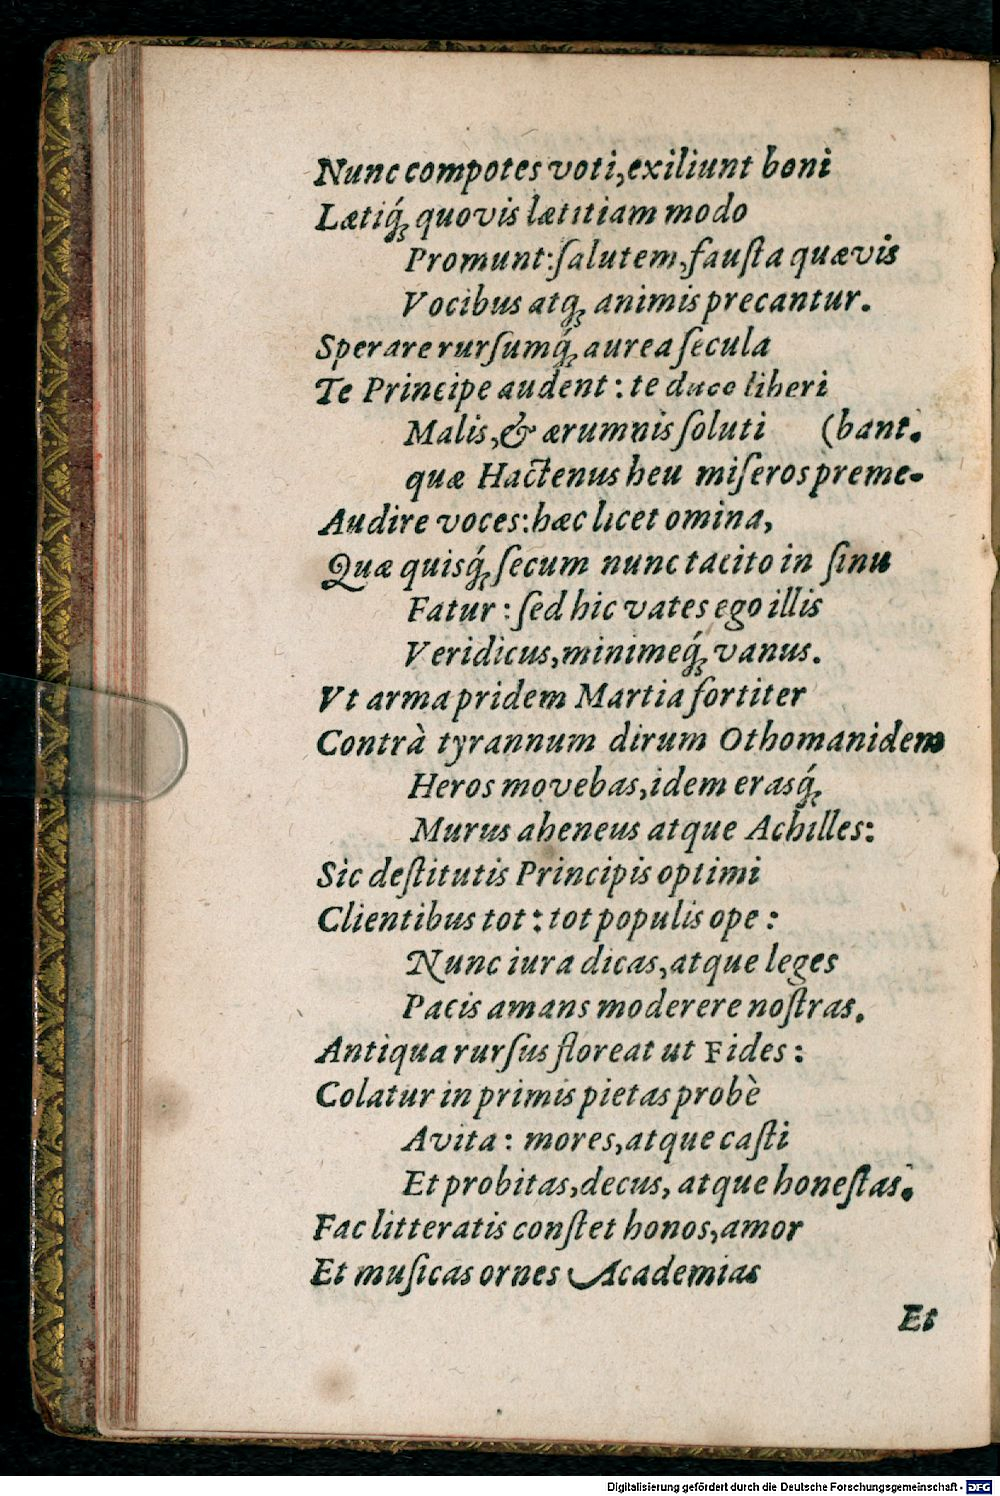 Nunc compotes voti, exiliunt boni
Lætiq́ꝫ quovis lætitiam modo
Promunt: ſalutem, fauſta quævis
Vocibus atqꝫ animis precantur.
Sperare rurſumq́ꝫ aurea ſecula
Te Principe audent: te duce liberi
Malis, & ærumnis ſoluti (bant.
quæ Hactenus heu miſeros preme-
Audire voces: hæc licet omina,
Quæ quisq́ꝫ ſecum nunc tacito in ſinu
Fatur: ſed hic vates ego illis
Veridicus, minimeq́ꝫ vanus.
Vt arma pridem Martia fortiter
Contrà tyrannum dirum Othomanidem
Heros movebas, idem erasq́ꝫ
Murus aheneus atque Achilles:
Sic deſtitutis Principis optimi
Clientibus tot: tot populis ope:
Nunc iura dicas, atque leges
Pacis amans moderere noſtras.
Antiqua rurſus floreat ut Fides:
Colatur in primis pietas probè
Avita: mores, atque caſti
Et probitas, decus, atque honeſtas.
Fac litteratis conſtet honos, amor
Et muſicas ornes Academias
Et
Digitalisierung gefördert durch die Deutsche Forschungsgemeinschaft - DFG